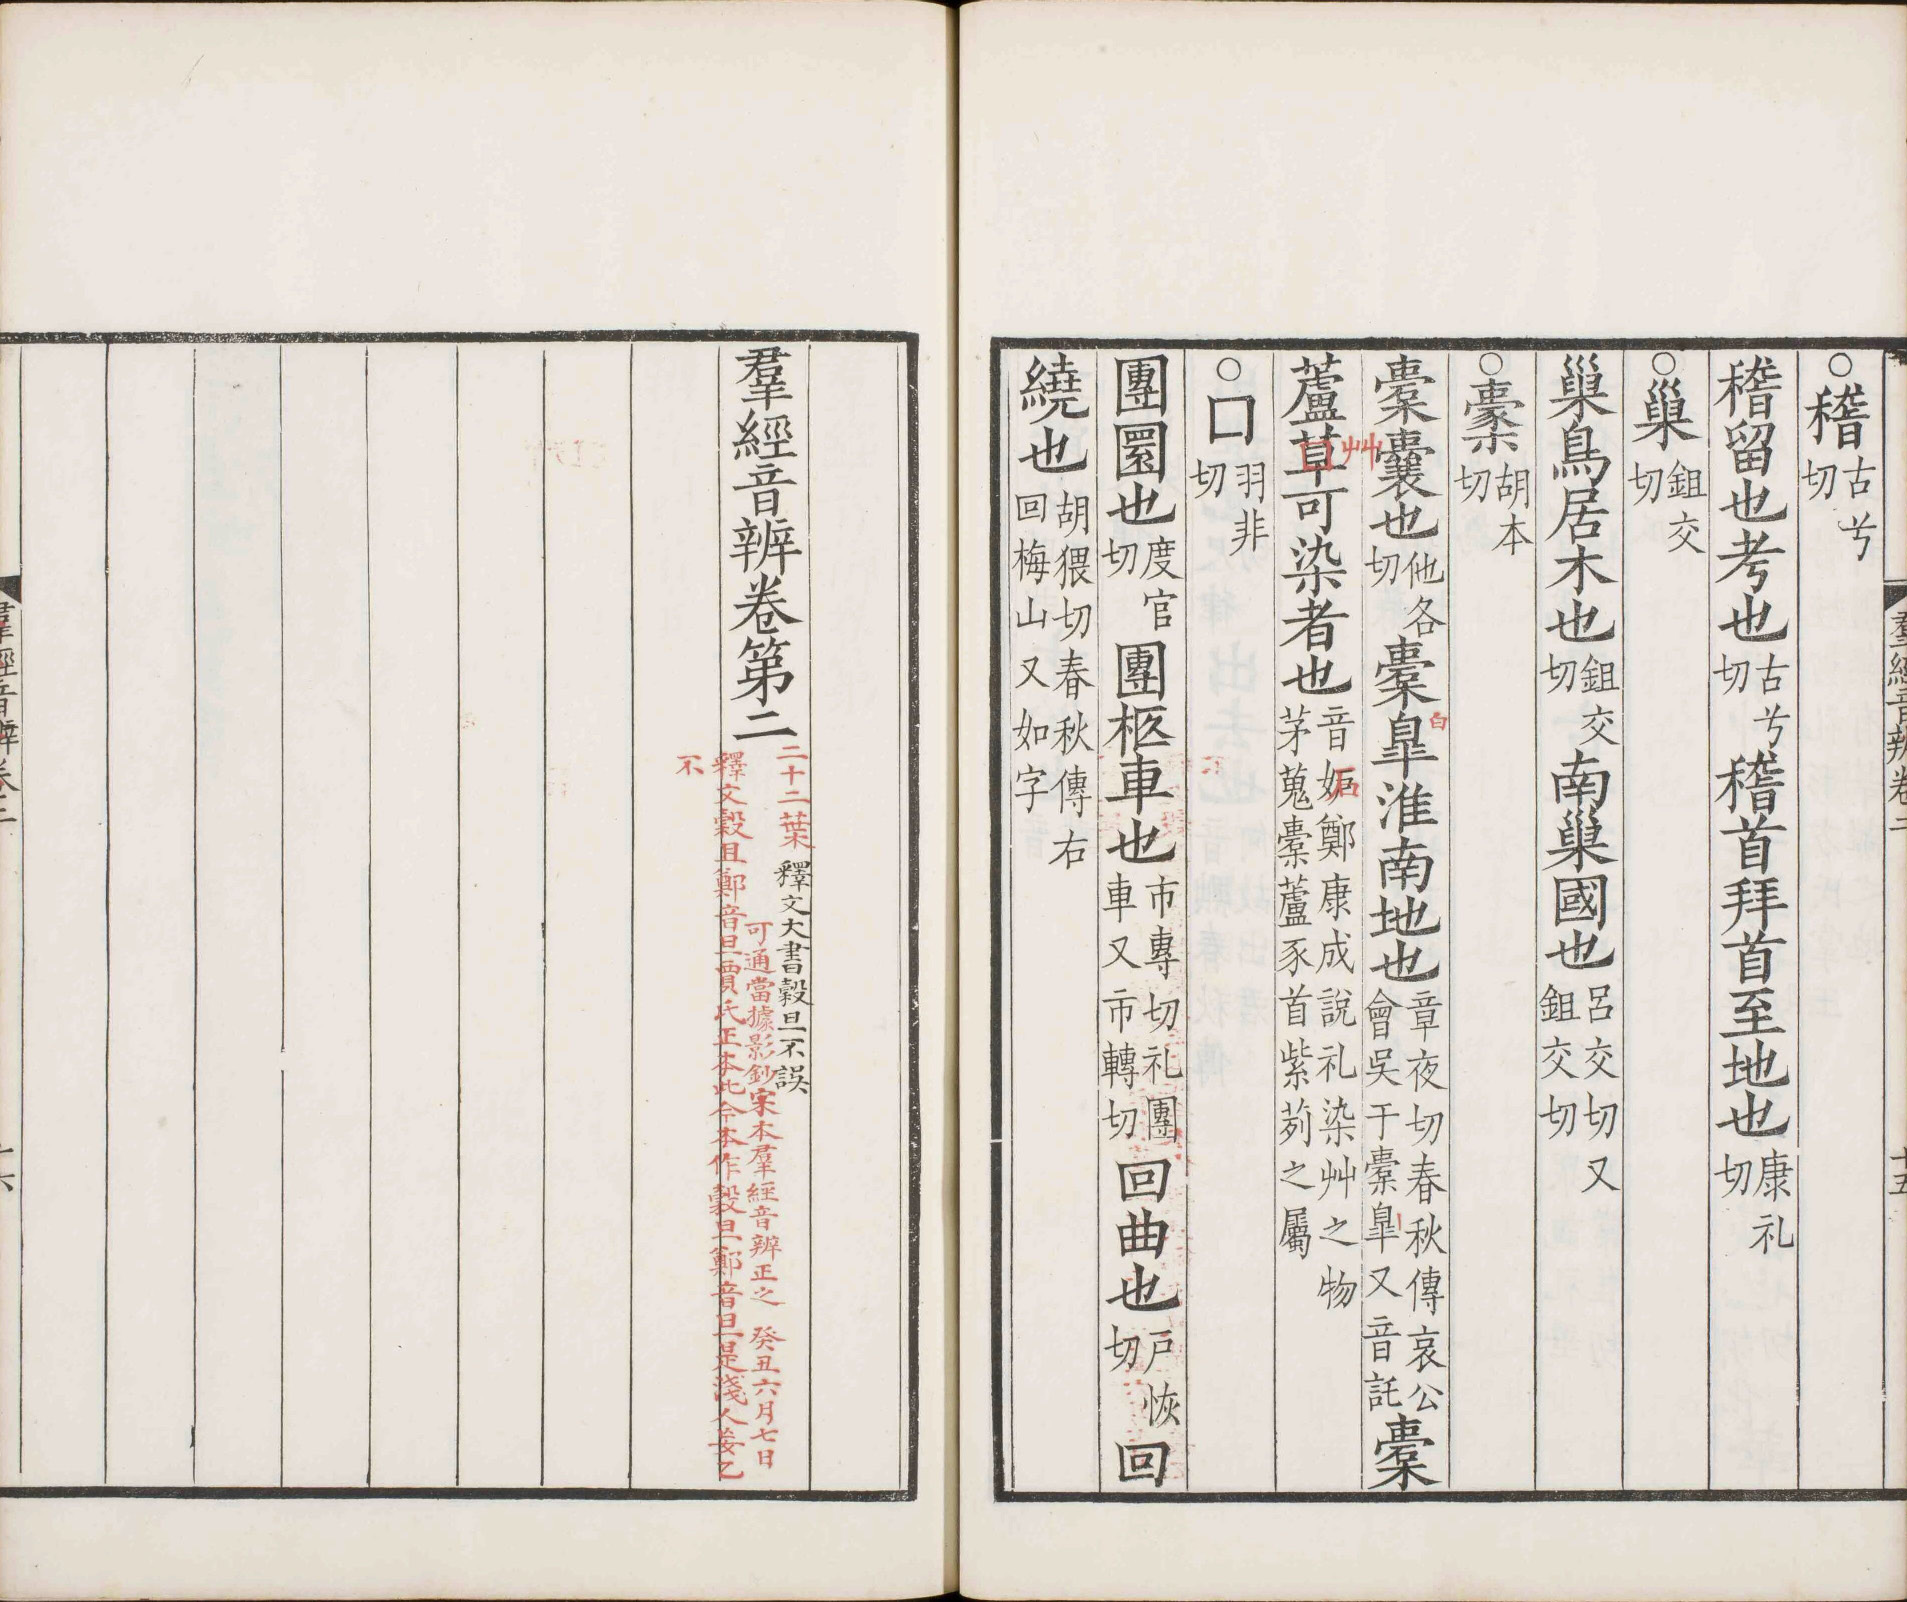 ○稽古兮切
稽留也考也古兮切稽首拜首至地也康礼切
○巢鉏交切
巢鳥居木也鉏交切南巢國也呂交切又鉏交切
○橐胡本切
橐囊也他各切橐皐淮南地也章夜切春秋傳哀公會吳于橐皐又音託橐
白
艸
蘆草可染者也音妬鄭康成說礼染艸之物茅蒐橐蘆豕首紫茢之屬
○囗羽非切
團圜也度官切團柩車也市專切礼團車又市轉切回曲也戸恢切回
繞也胡猥切春秋傳右回梅山又如字
羣經音辨卷二
十五
羣經音辨卷第二
二十二葉
釋文大書穀旦不誤
釋文穀且鄭音旦賈氏正本此今本作穀旦鄭音旦是淺人妄乙
不可通當據影鈔宋本羣經音辨正之 癸丑六月七日
羣經音辨卷二
十六